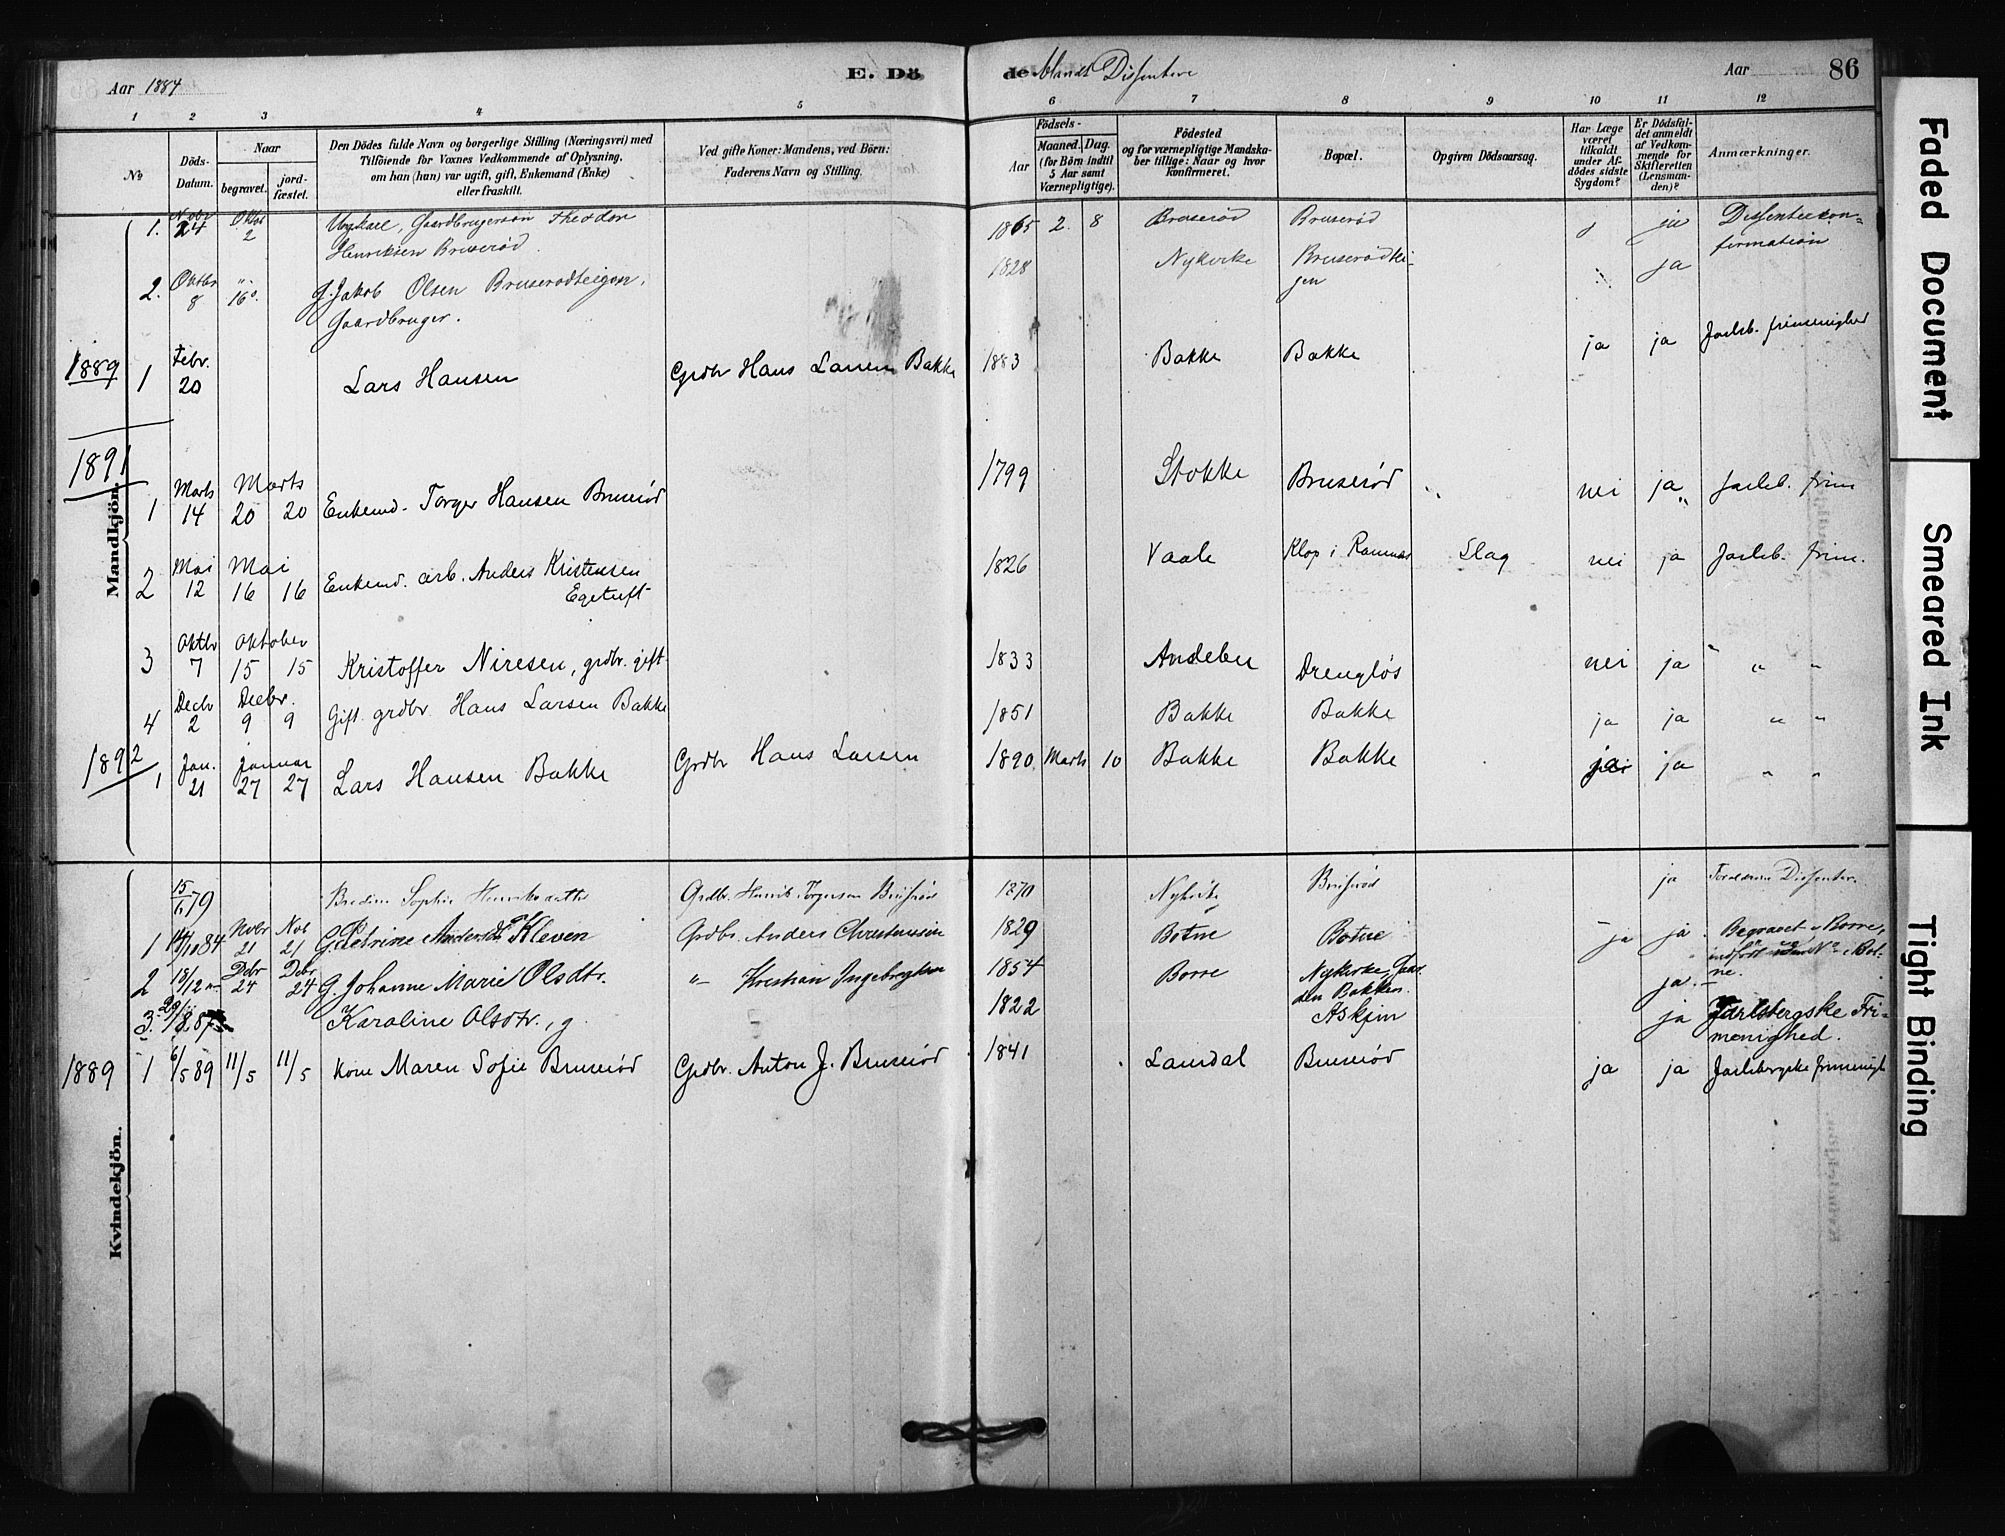 Aar 1884 E. Dö de blandt Dissentere Aar 86
1 2 3 4 5 6 7 8 9 10 11 12
No
Döds-Datum.
Naar
begravet.
jord-fæstet.
Den Dödes fulde Navn og borgerlige Stilling (Næringsvei) med
Tilföiende for Voxnes Vedkommende af Oplysning,
om han (hun) var ugift, gift, Enkemand (Enke)
eller fraskilt.
Ved gifte Koner: Mandens, ved Börn:
Faderens Navn og Stilling.
Födsels-
Aar
Maaned. Dag.
(for Börn indtil
5 Aar samt
Værnepligtige).
Födested
og for værnepligtige Mandska-
ber tillige: Naar og hvor
konfirmeret.
Bopæl.
Opgiven Dödsaarsag.
Har Læge
været
tilkaldt
under Af-
dödes sidste
Sygdom?
Er Dödsfal-
det anmeldt
af Vedkom-
mende for
Skifteretten
(Lensman-
den)?
Anmærkninger.
Mandkjön.
1. 24 Oktbr 2 Ungkarl, Gaardbrugersøn Theodor 1865 2. 8 Bruserød Bruserød ja Dissenterkon=
Henriksen Bruserød. firmation
2. Oktbr 8 " 16 G. Jakob Olsen Bruserødteigen, 1828 Nykirke Bruserødtei- ja
Gaardbruger. gen
1889 1 Febr. 20 Lars Hansen Grdbr Hans Larsen Bakke 1883 Bakke Bakke ja ja Jarlsb. frimenighed
1891
1 Marts 14 Marts 20 20 Enkemd. Torger Hansen Bruserød 1799 Stokke Bruserød " nei ja " Jarlsb. frim
2 Mai 12 Mai 16 16 Enkemd. arb. Anders Kristensen 1826 Vaale Klop i Ramnæs Slag nei ja Jarlsb. frim.
Egetuft
3 Oktbr 7 Oktober 15 15 Kristoffer Niresen, grdbr. gift 1833 Andebu Drengløs nei ja " "
4 Decbr 2 Decbr. 9 9 Gift. grdbr. Hans Larsen Bakke 1851 Bakke Bakke ja ja " "
1892 1 Jan. 21 Januar 27 27 Lars Hansen Bakke Grdbr Hans Larsen 1890 Marts 10 Bakke Bakke ja " "
Kvindekjön.
15/6 79 Sophie Grdbr. Henrik Torgersen Bruserød 1870 Nykirke Bruserød ja Forældrene Dissenter.
1 84 Novbr 21 Nob 21 G. Petrine Andersdtr Kleven Grdbr. Anders Christensen 1829 Botne Botne ja ja. Begravet i Borre,
2 18/12 Debr 24 Debr. 24 G. Johanne Marie Olsdtr. " Kristian Ingebregtsen 1854 Borre Nykirke ja. ne.
Bakken.
3. 87 Karoline Olsdtr., g 1822 Askjim ja Jarlsbergske Fri-
menighed.
1889 1 6/5 89 11/5 11/5 Kone Maren Sofie Bruserød Grdbr. Anton J. Bruserød 1841 Laurdal Bruserød ja ja Jarlsbergske frimenigh
Faded Document
Smeared Ink
Tight Binding